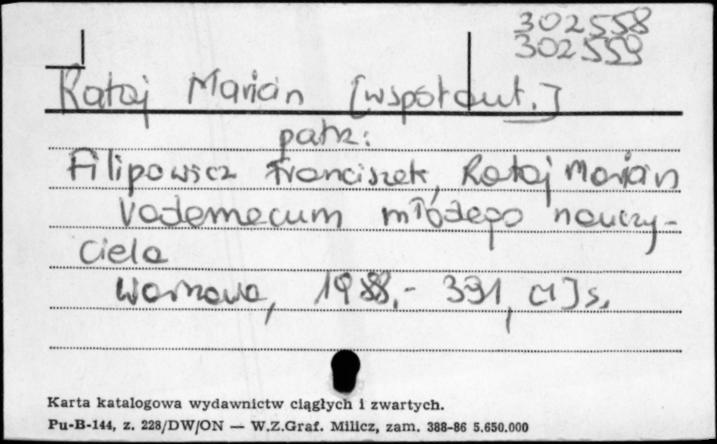 302558
302559
Rataj Marian [współaut.]
patrz:
Filipowicz Franciszek, Rataj Marian
Vademecum młodego nauczy-
ciela
Warszawa, 1988.- 391, [1] s.
Karta katalogowa wydawnictw ciągłych i zwartych.
Pu-B-144, z. 228/DW/ON — W.Z.Graf. Milicz, zam. 388-86 5.650.000